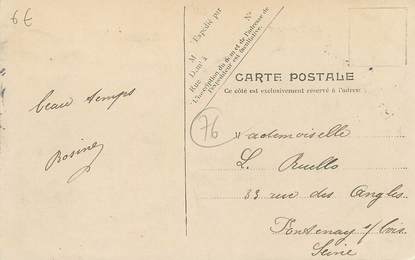 6€
Expédié par
N°
M
Dem.t à
Rue
L'inscription du d.m et de l'adresse de
l'expéditeur est facultative.
CARTE POSTALE
Ce côté est exclusivement réservé à l'adresse
76
beau temps
Rosine
Mademoiselle
L. Ruello
33 rue des Angles
Fontenay s/ bois
Seine